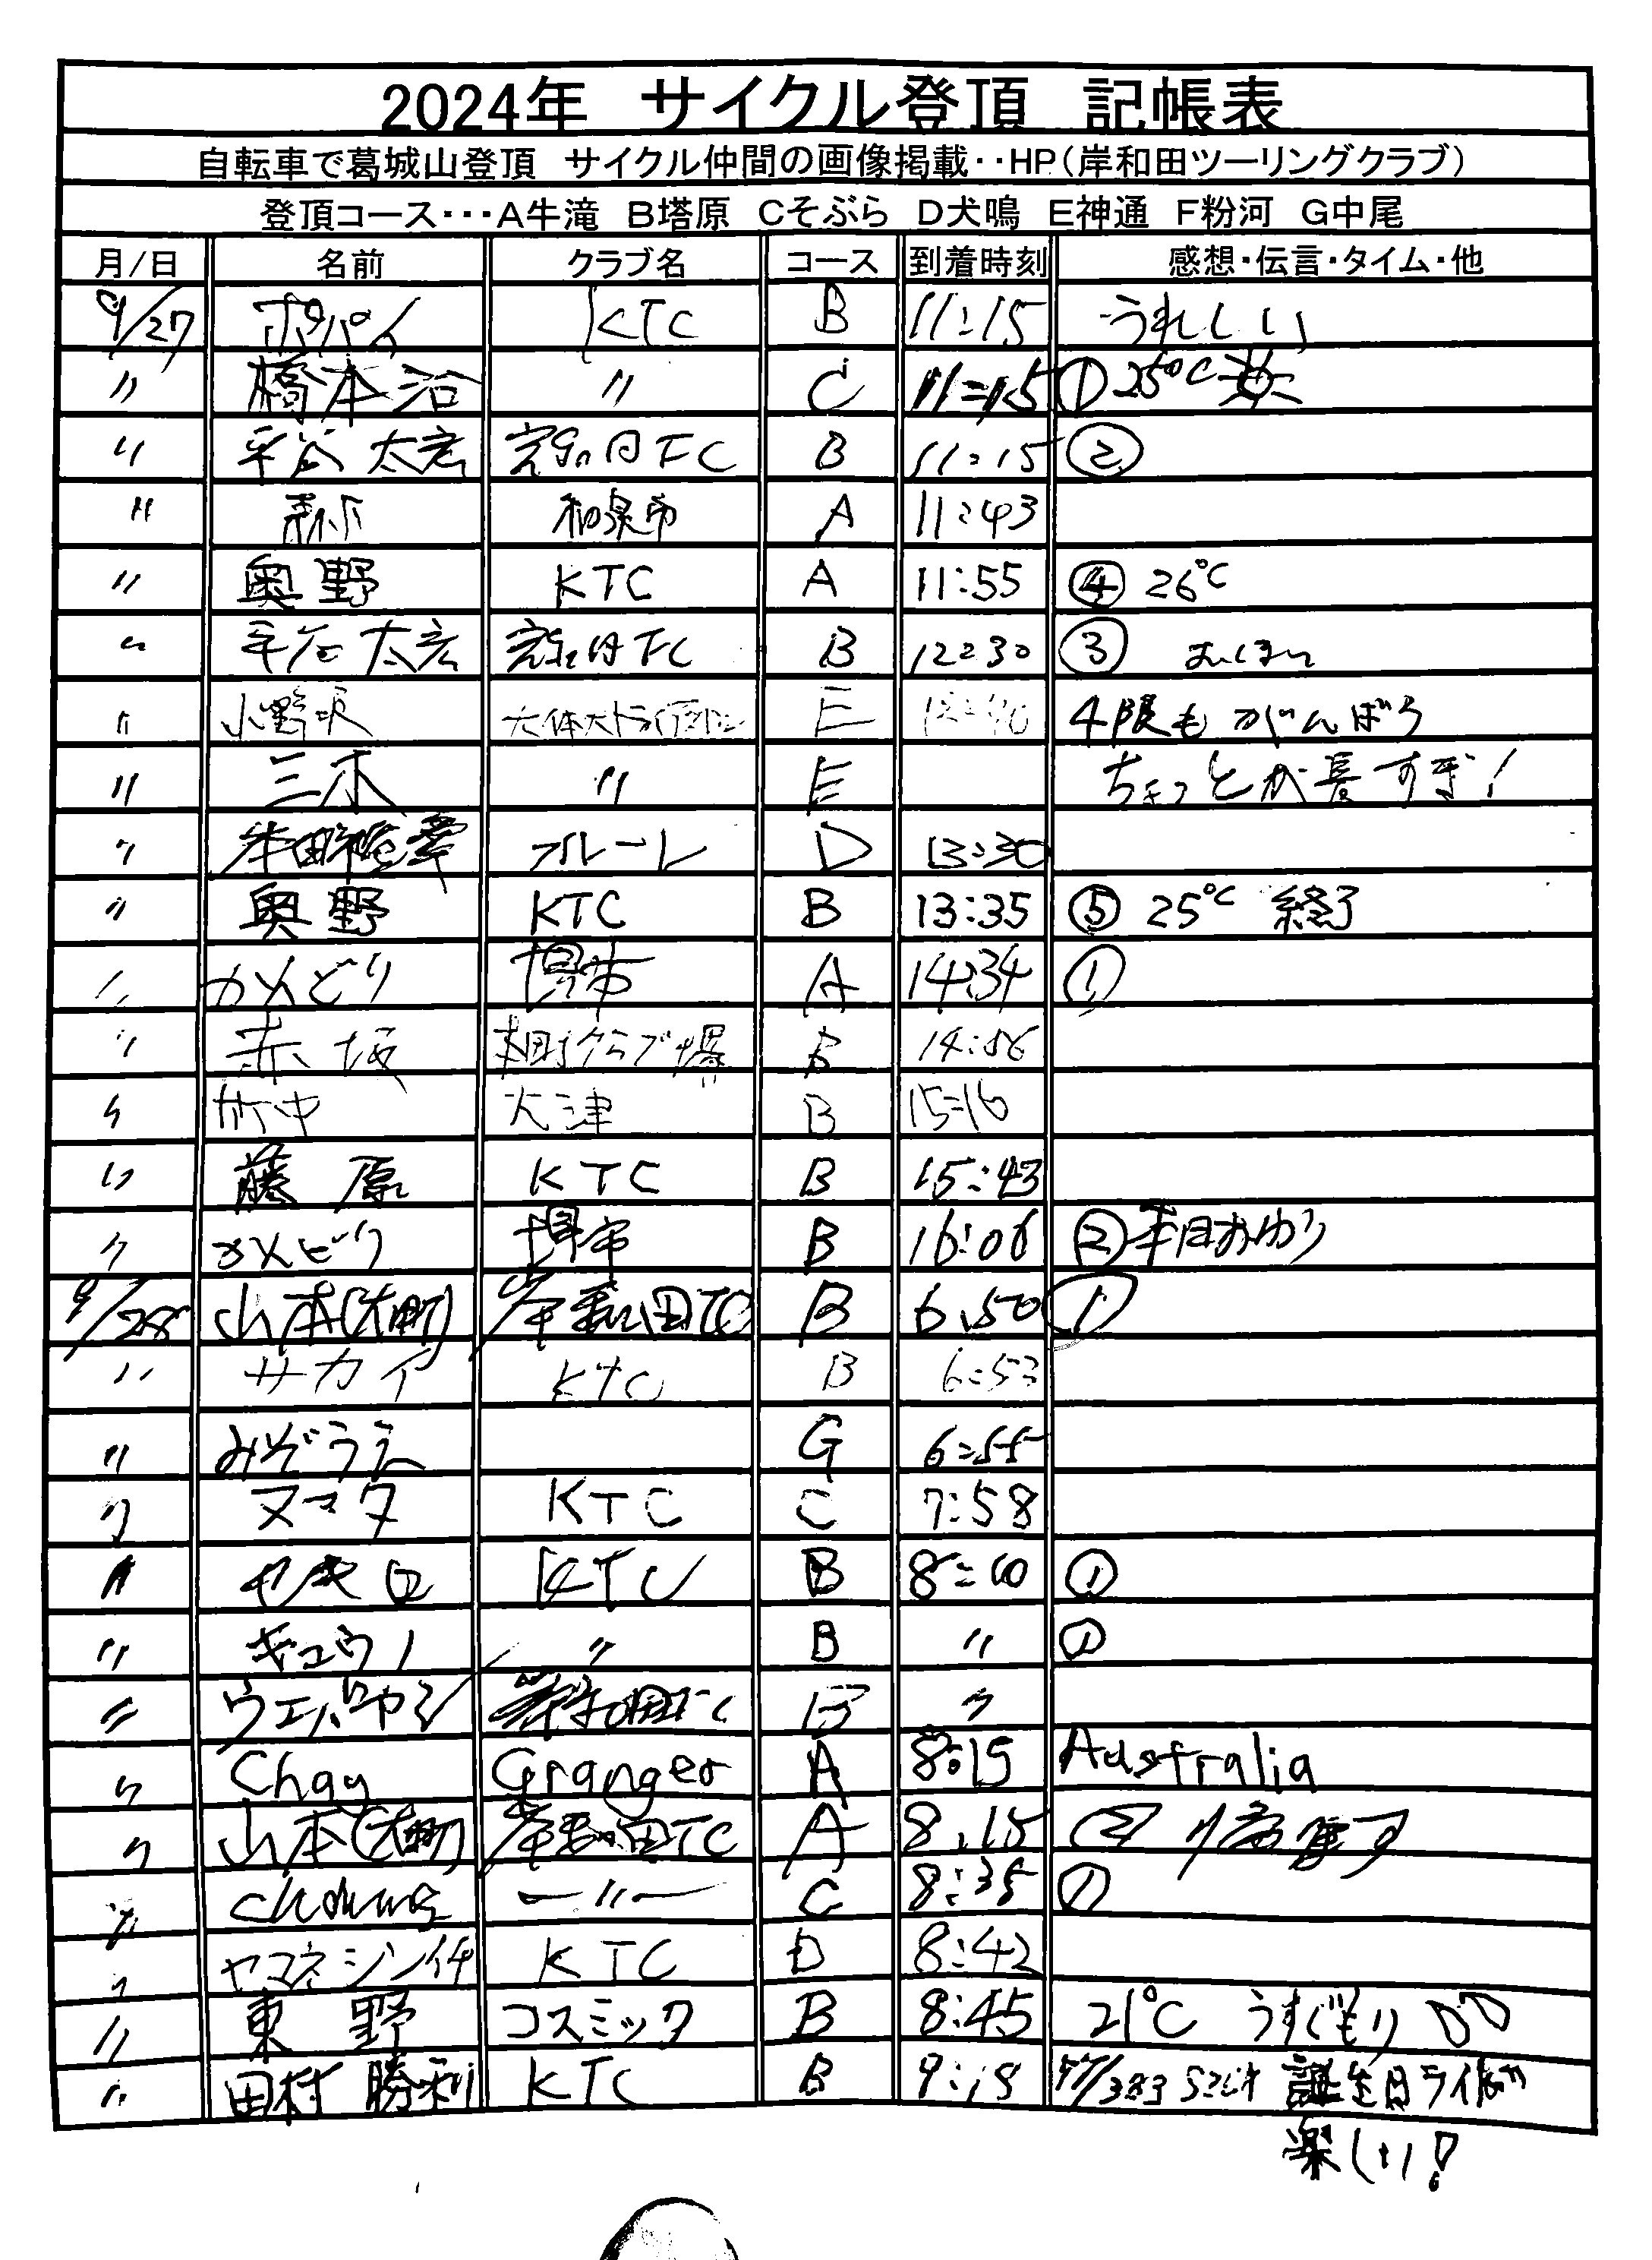 2024年 サイクル登頂 記帳表
自転車で葛城山登頂 サイクル仲間の画像掲載・・HP(岸和田ツーリングクラブ)
登頂コース・・・A牛滝 B塔原 Cそぶら D犬鳴 E神通 F粉河 G中尾
月/日 名前 クラブ名 コース 到着時刻 感想・伝言・タイム・他
9/27 ポパイ KTC B 11:15 うれしい
〃 橋本治 〃 C 11:15 ① 25℃
〃 平谷 太宏 TC B 11:15 ②
〃 森下 和泉市 A 11:43
〃 奥野 KTC A 11:55 ④ 26℃
〃 平谷 太宏 TC B 12:30 ③
〃 小野沢 大体大トライアスロン E 12:40 4限もがんばろう
〃 三木 〃 E ちょっとが長すぎ!
〃 フルーレ D 13:30
〃 奥野 KTC B 13:35 ⑤ 25℃ 終了
〃 かんどり 堺市 A 14:34 ①
〃 赤坂 クラブ堺 B 14:56
〃 竹中 大津 B 15:16
〃 藤原 KTC B 15:43
〃 かんどり 堺市 B 16:06 ②
9/28 山本(大町) 岸和田TC B 6:50 ①
〃 サカイ KTC B 6:53
〃 みぞうえ G 6:55
〃 ヌマタ KTC C 7:58
〃 KTC B 8:10 ①
〃 キュウノ 〃 B 〃 ①
〃 岸和田TC B 〃
〃 Chay Granger A 8:15 Australia
〃 山本(大町) 岸和田TC A 8:15 ②
〃 〃 C 8:35 ①
〃 ヤマネシンイチ KTC D 8:42
〃 東野 コスミック B 8:45 21℃ うすぐもり
〃 田村 勝利 KTC B 9:18 97/383 誕生日ライドが
楽しい!